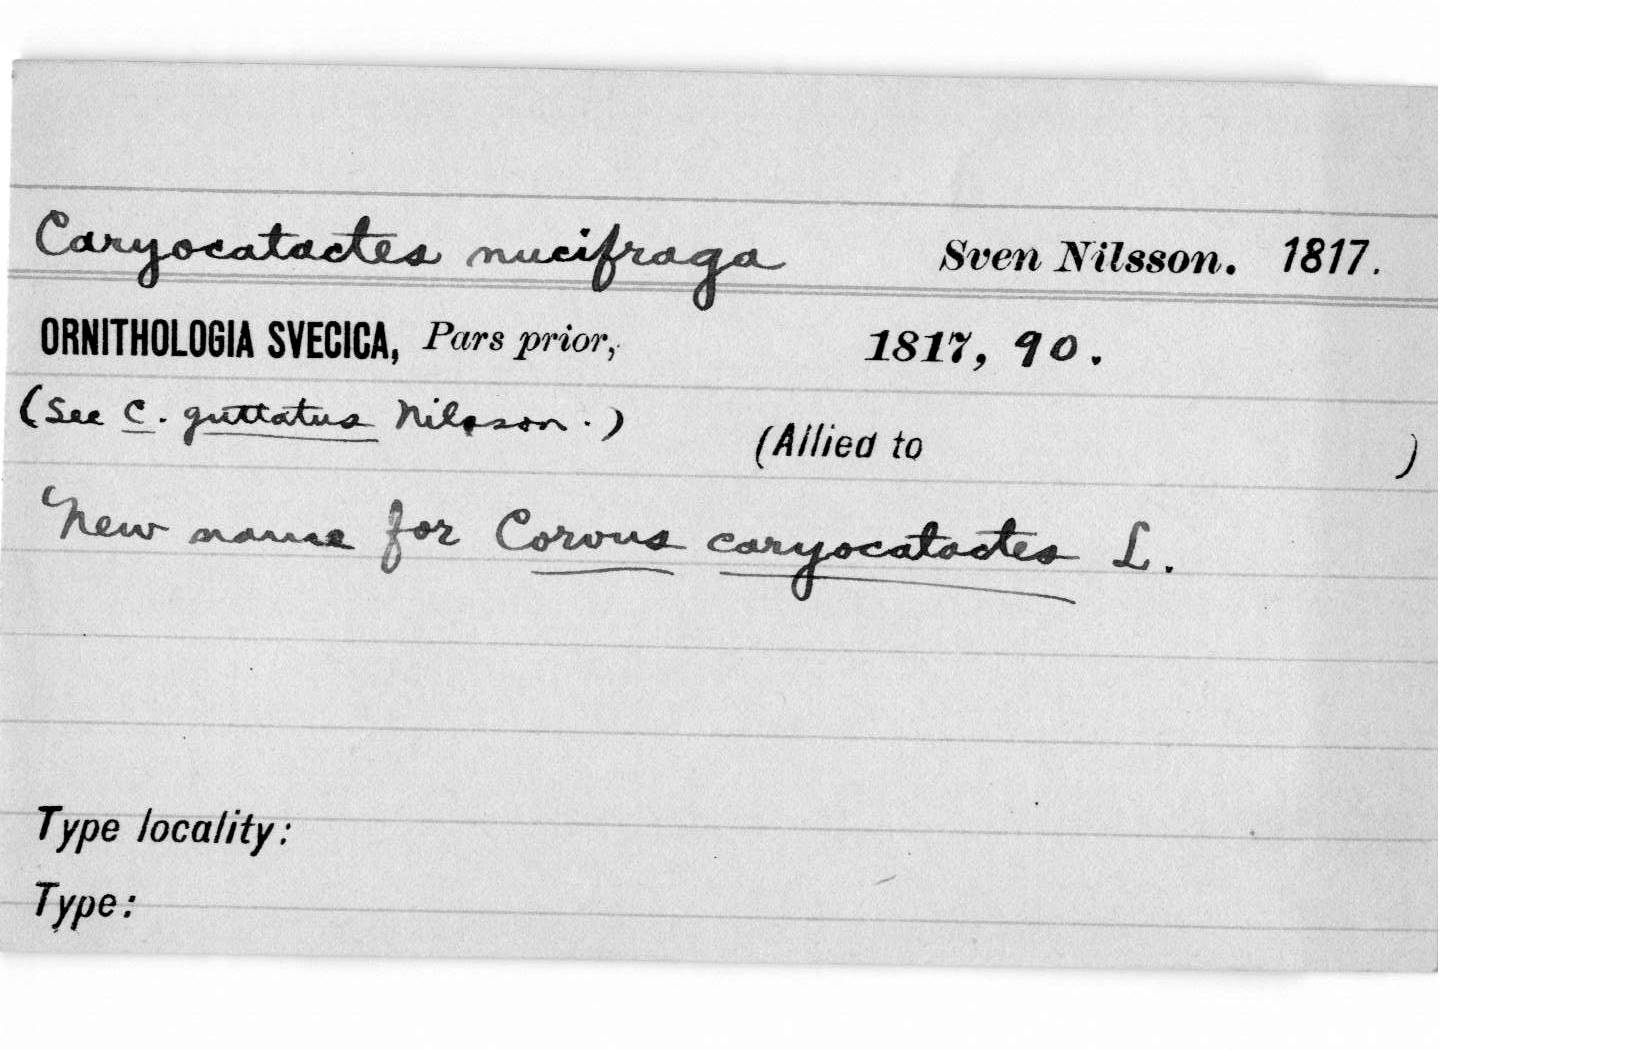 Caryocatactes nucifraga Sven Nilsson. 1817.
ORNITHOLOGIA SVECICA, Pars prior, 1817, 90.
(See C. guttatus Nilsson.)
(Allied to )
New name for Corvus caryocatactes L.
Type locality:
Type: